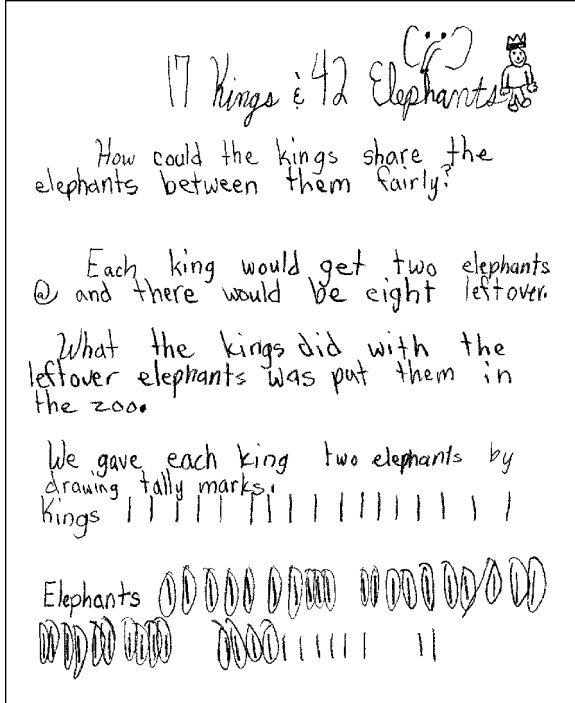 17 Kings & 42 Elephants
How could the kings share the
elephants between them fairly?
Each king would get two elephants
@ and there would be eight leftover.
What the kings did with the
leftover elephants was put them in
the zoo.
We gave each king two elephants by
drawing tally marks.
Kings
Elephants